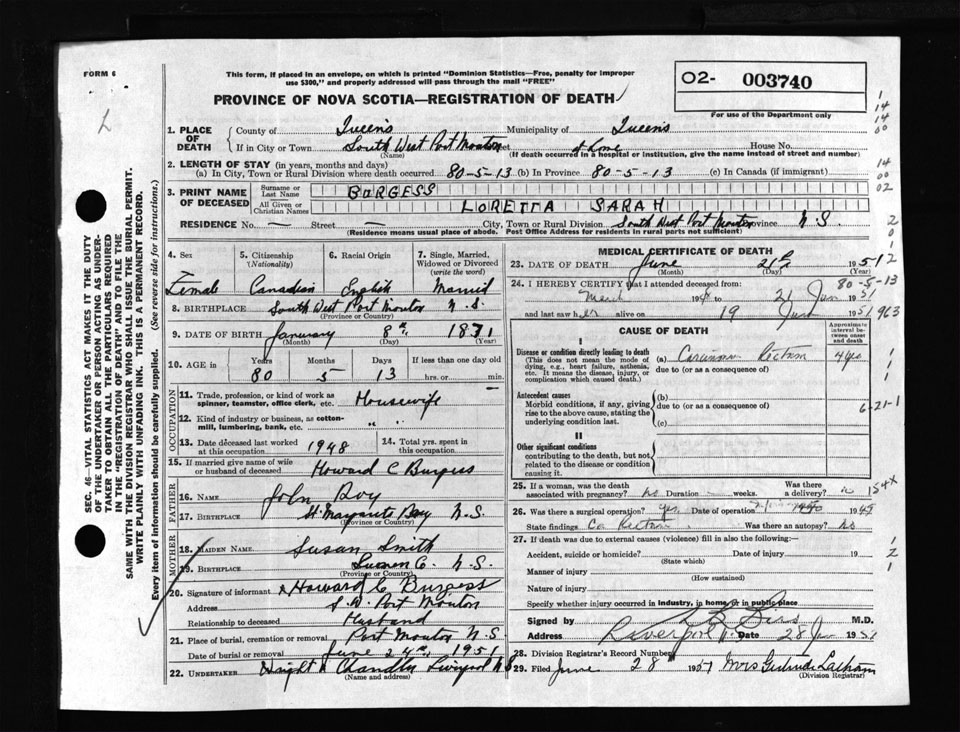 FORM 6
This form, if placed in an envelope, on which is printed "Dominion Statistics—Free, penalty for improper
use $300," and properly addressed will pass through the mail "FREE"
O2- 003740
For use of the Department only
PROVINCE OF NOVA SCOTIA—REGISTRATION OF DEATH
L
1. PLACE OF DEATH
County of Queens Municipality of Queens
If in City or Town South West Port Mouton Street at home House No.
(Name) (If death occurred in a hospital or institution, give the name instead of street and number)
2. LENGTH OF STAY (in years, months and days)
(a) In City, Town or Rural Division where death occurred 80-5-13 (b) In Province 80-5-13 (c) In Canada (if immigrant)
3. PRINT NAME OF DECEASED
Surname or Last Name BURGESS
All Given or Christian Names LORETTA SARAH
RESIDENCE No. — Street City, Town or Rural Division South West Port Mouton Province N.S.
(Residence means usual place of abode. Post Office Address for residents in rural parts not sufficient)
4. Sex 5. Citizenship (Nationality) 6. Racial Origin 7. Single, Married, Widowed or Divorced (write the word)
Female Canadian English Married
8. BIRTHPLACE South West Port Mouton N.S.
(Province or Country)
9. DATE OF BIRTH January 8th 1871
(Month) (Day) (Year)
10. AGE in Years Months Days If less than one day old
80 5 13 hrs. or min.
OCCUPATION
11. Trade, profession, or kind of work as spinner, teamster, office clerk, etc. Housewife
12. Kind of industry or business, as cotton-mill, lumbering, bank, etc. " "
13. Date deceased last worked at this occupation 1948 14. Total yrs. spent in this occupation
15. If married give name of wife or husband of deceased Howard C Burgess
FATHER
16. Name John Roy
17. BIRTHPLACE St Margarets Bay N.S.
(Province or Country)
MOTHER
18. MAIDEN NAME Susan Smith
19. BIRTHPLACE Co. N.S.
(Province or Country)
20. Signature of informant Howard C Burgess
Address S.W. Port Mouton
Relationship to deceased Husband
21. Place of burial, cremation or removal Port Mouton N.S
Date of burial or removal June 24th, 1951
22. UNDERTAKER Chandler Liverpool N.S
(Name and address)
MEDICAL CERTIFICATE OF DEATH
23. DATE OF DEATH June 21st 1951
(Month) (Day) (Year)
24. I HEREBY CERTIFY that I attended deceased from:
March to 21 1951
and last saw her alive on 19 June 1951
CAUSE OF DEATH
Approximate interval between onset and death
I
Disease or condition directly leading to death
(This does not mean the mode of dying, e.g., heart failure, asthenia, etc. It means the disease, injury, or complication which caused death.)
(a) Carcinoma Rectum 4 yrs
due to (or as a consequence of)
Antecedent causes
Morbid conditions, if any, giving rise to the above cause, stating the underlying condition last.
(b)
due to (or as a consequence of)
(c)
II
Other significant conditions
contributing to the death, but not related to the disease or condition causing it.
25. If a woman, was the death associated with pregnancy? no Duration weeks. Was there a delivery? no
26. Was there a surgical operation? yes Date of operation
State findings Ca Rectum Was there an autopsy? no
27. If death was due to external causes (violence) fill in also the following:—
Accident, suicide or homicide? Date of injury 19
(State which)
Manner of injury
(How sustained)
Nature of injury
Specify whether injury occurred in industry, in home, or in public place
Signed by M.D.
Address Liverpool Date 28 1951
28. Division Registrar's Record Number
29. Filed June 28 1951 Mrs Gertrude Latham
(Division Registrar)
80-5-13
963
6-21-1
154X
SEC. 46—VITAL STATISTICS ACT MAKES IT THE DUTY
OF THE UNDERTAKER OR PERSON ACTING AS UNDER-
TAKER TO OBTAIN ALL THE PARTICULARS REQUIRED
IN THE "REGISTRATION OF DEATH" AND TO FILE THE
SAME WITH THE DIVISION REGISTRAR WHO SHALL ISSUE THE BURIAL PERMIT.
WRITE PLAINLY WITH UNFADING INK. THIS IS A PERMANENT RECORD.
Every item of information should be carefully supplied. (See reverse side for instructions.)